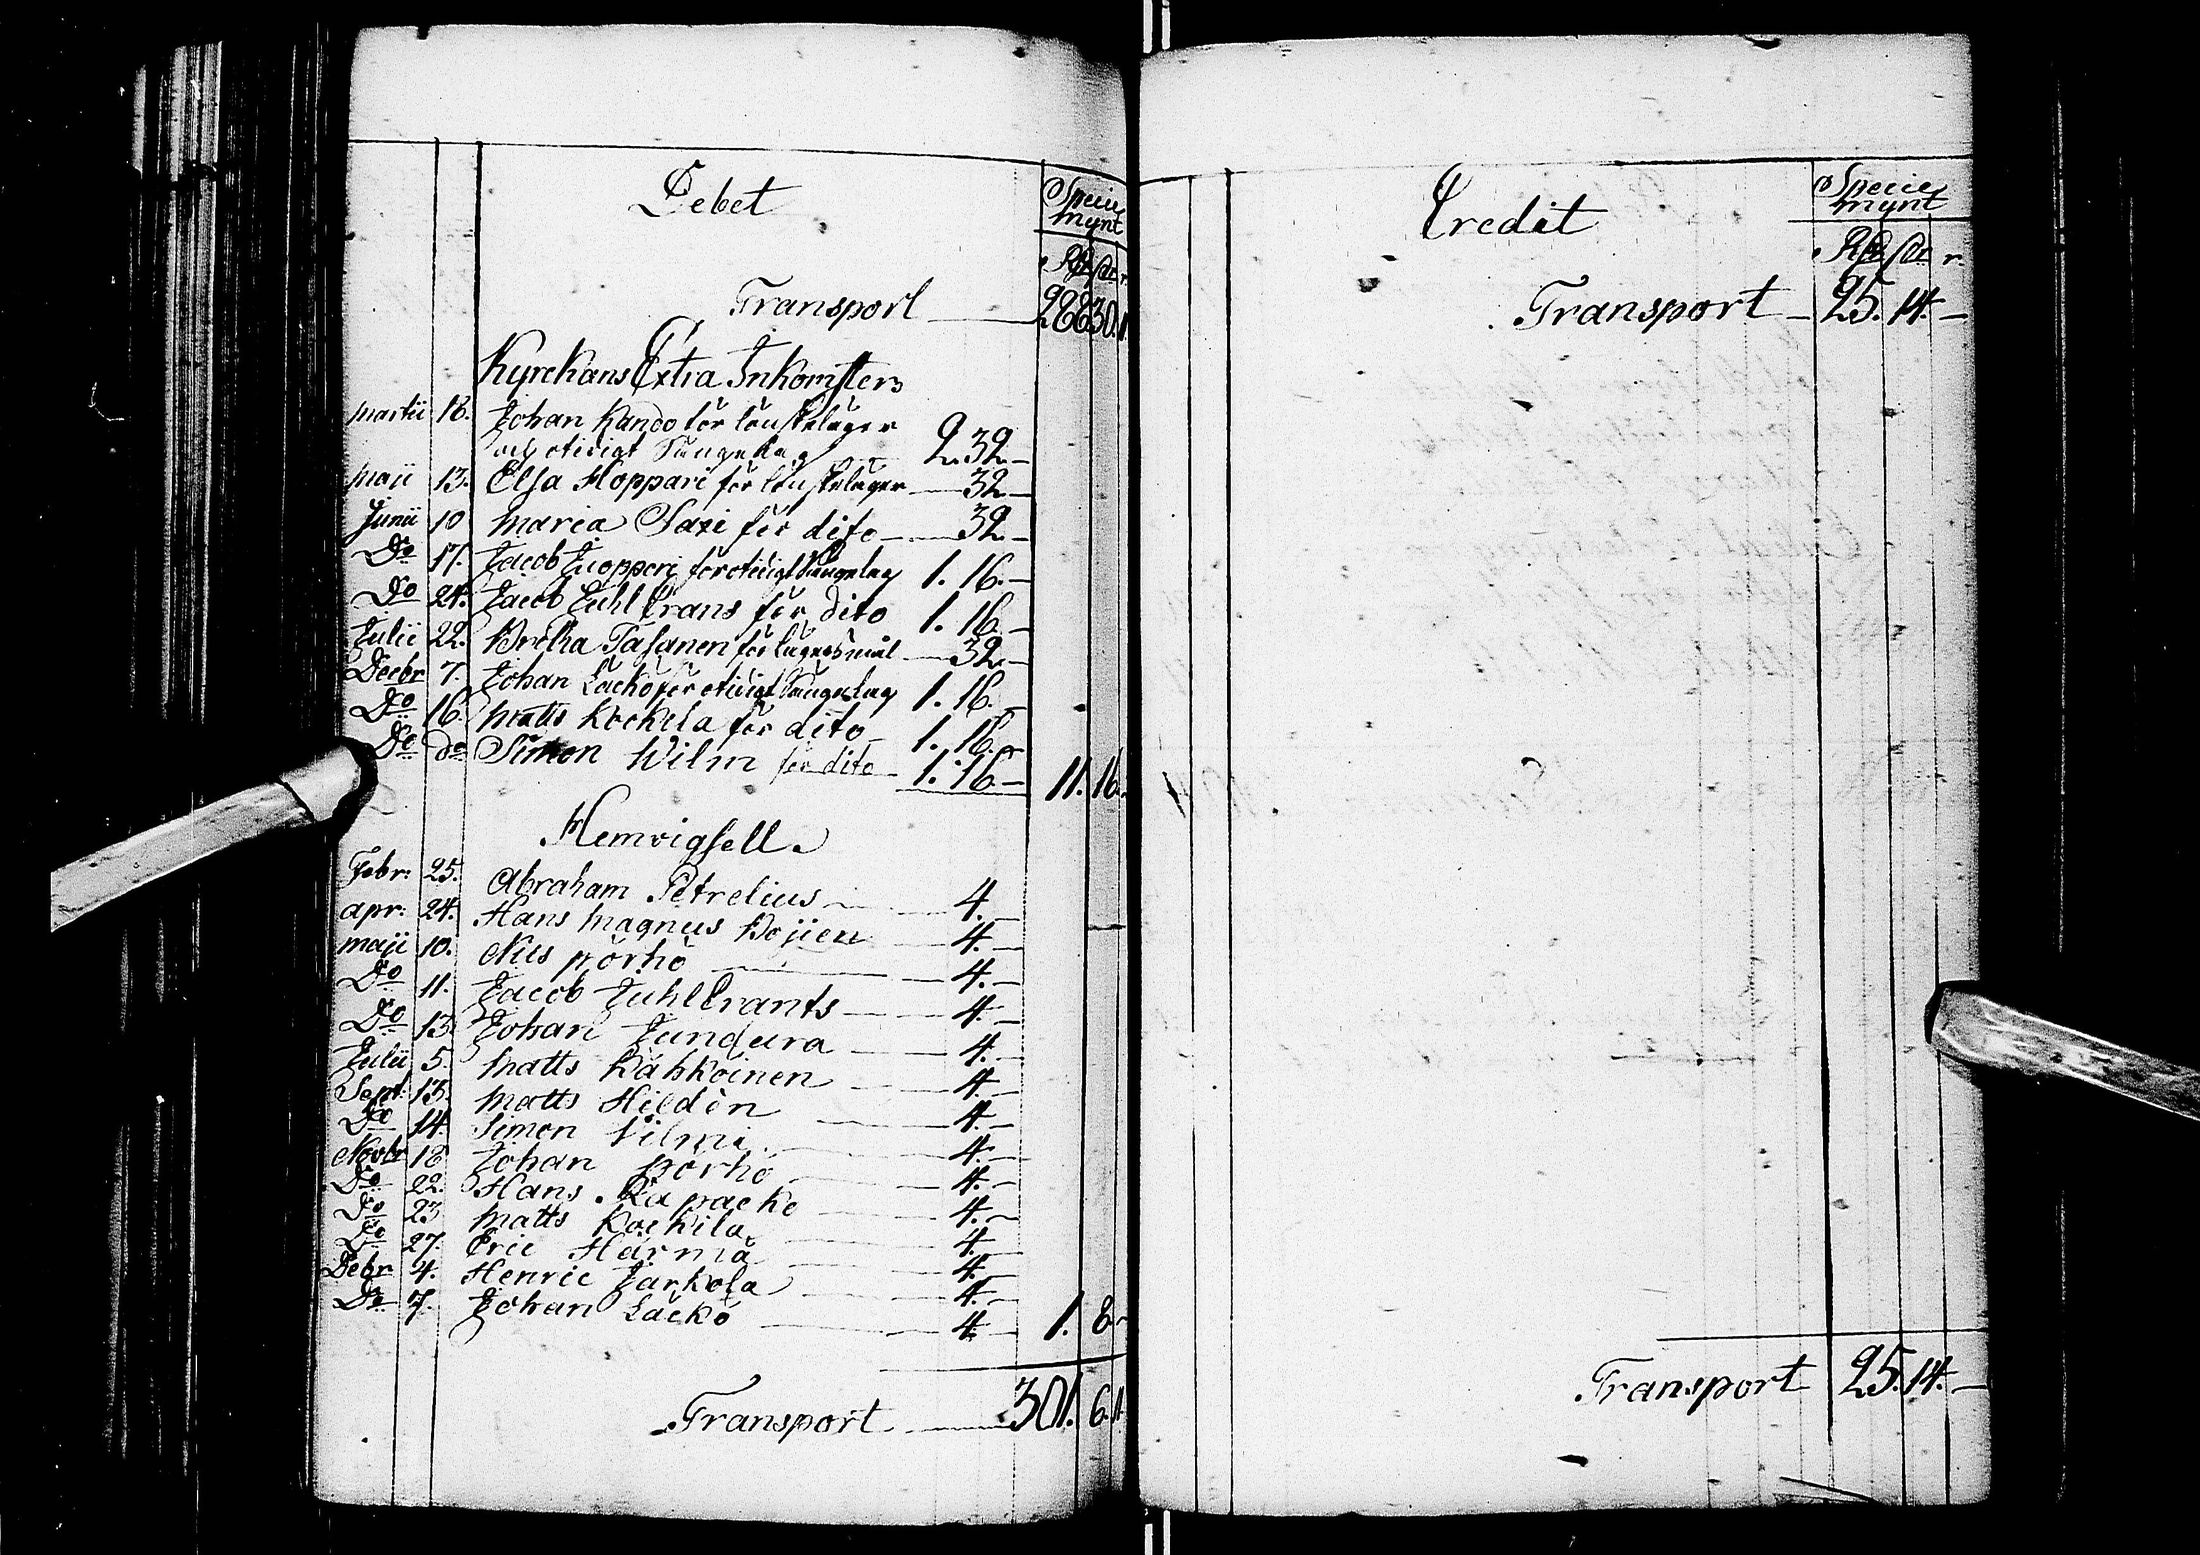 Debet
Specie
mynt
Rdr sk r
Transport 288 30. 1
Kyrckans Extra Inkomster
Martii 18. Johan Kando för lönskeläger
och otidigt Sängelag 2. 32. —
Maji 13. Elsa Hoppari för lönskeläger 32 —
Junii 10 Maria Saxi för dito 32 —
Do 17. Jacob Juoppari för otidigt Sängelag 1. 16. —
Do 24. Jacob Juhl Crans för dito 1. 16. —
Julii 22. Bretha Tasanen för lägersmål 32. —
Decbr 7. Johan Läckö för otidigt Sängelag 1. 16. —
Do 16. Matts Kockila för dito 1. 16. —
Do do Simon Wilm för dito 1. 16. — 11. 16.
Hemvigsell.
Febr: 25. Abraham Petrelius 4. —
Apr: 24. Hans Magnus Bojien 4. —
Maji 10. Nils Pörhö 4. —
Do 11. Jacob JuhlCrants 4. —
Do 13. Johan Jundura 4. —
Julii 5. Matts Kähköinen 4. —
Sept: 13. Matts Hildèn 4. —
Do 14. Simon Vilmi 4. —
Novbr 18 Johan Pörhö 4. —
Do 22. Hans Rapacko 4. —
Do 23 Matts Kockila 4. —
Do 27. Eric Härmä 4. —
Debr 4. Henric Jarkola 4. —
Do 7. Johan Läckö 4 — 1. 8 —
Transport 301. 6. 1.
Credit
Specie
mynt
Rdr sk r
Transport 25. 14. —
Transport 25. 14. —